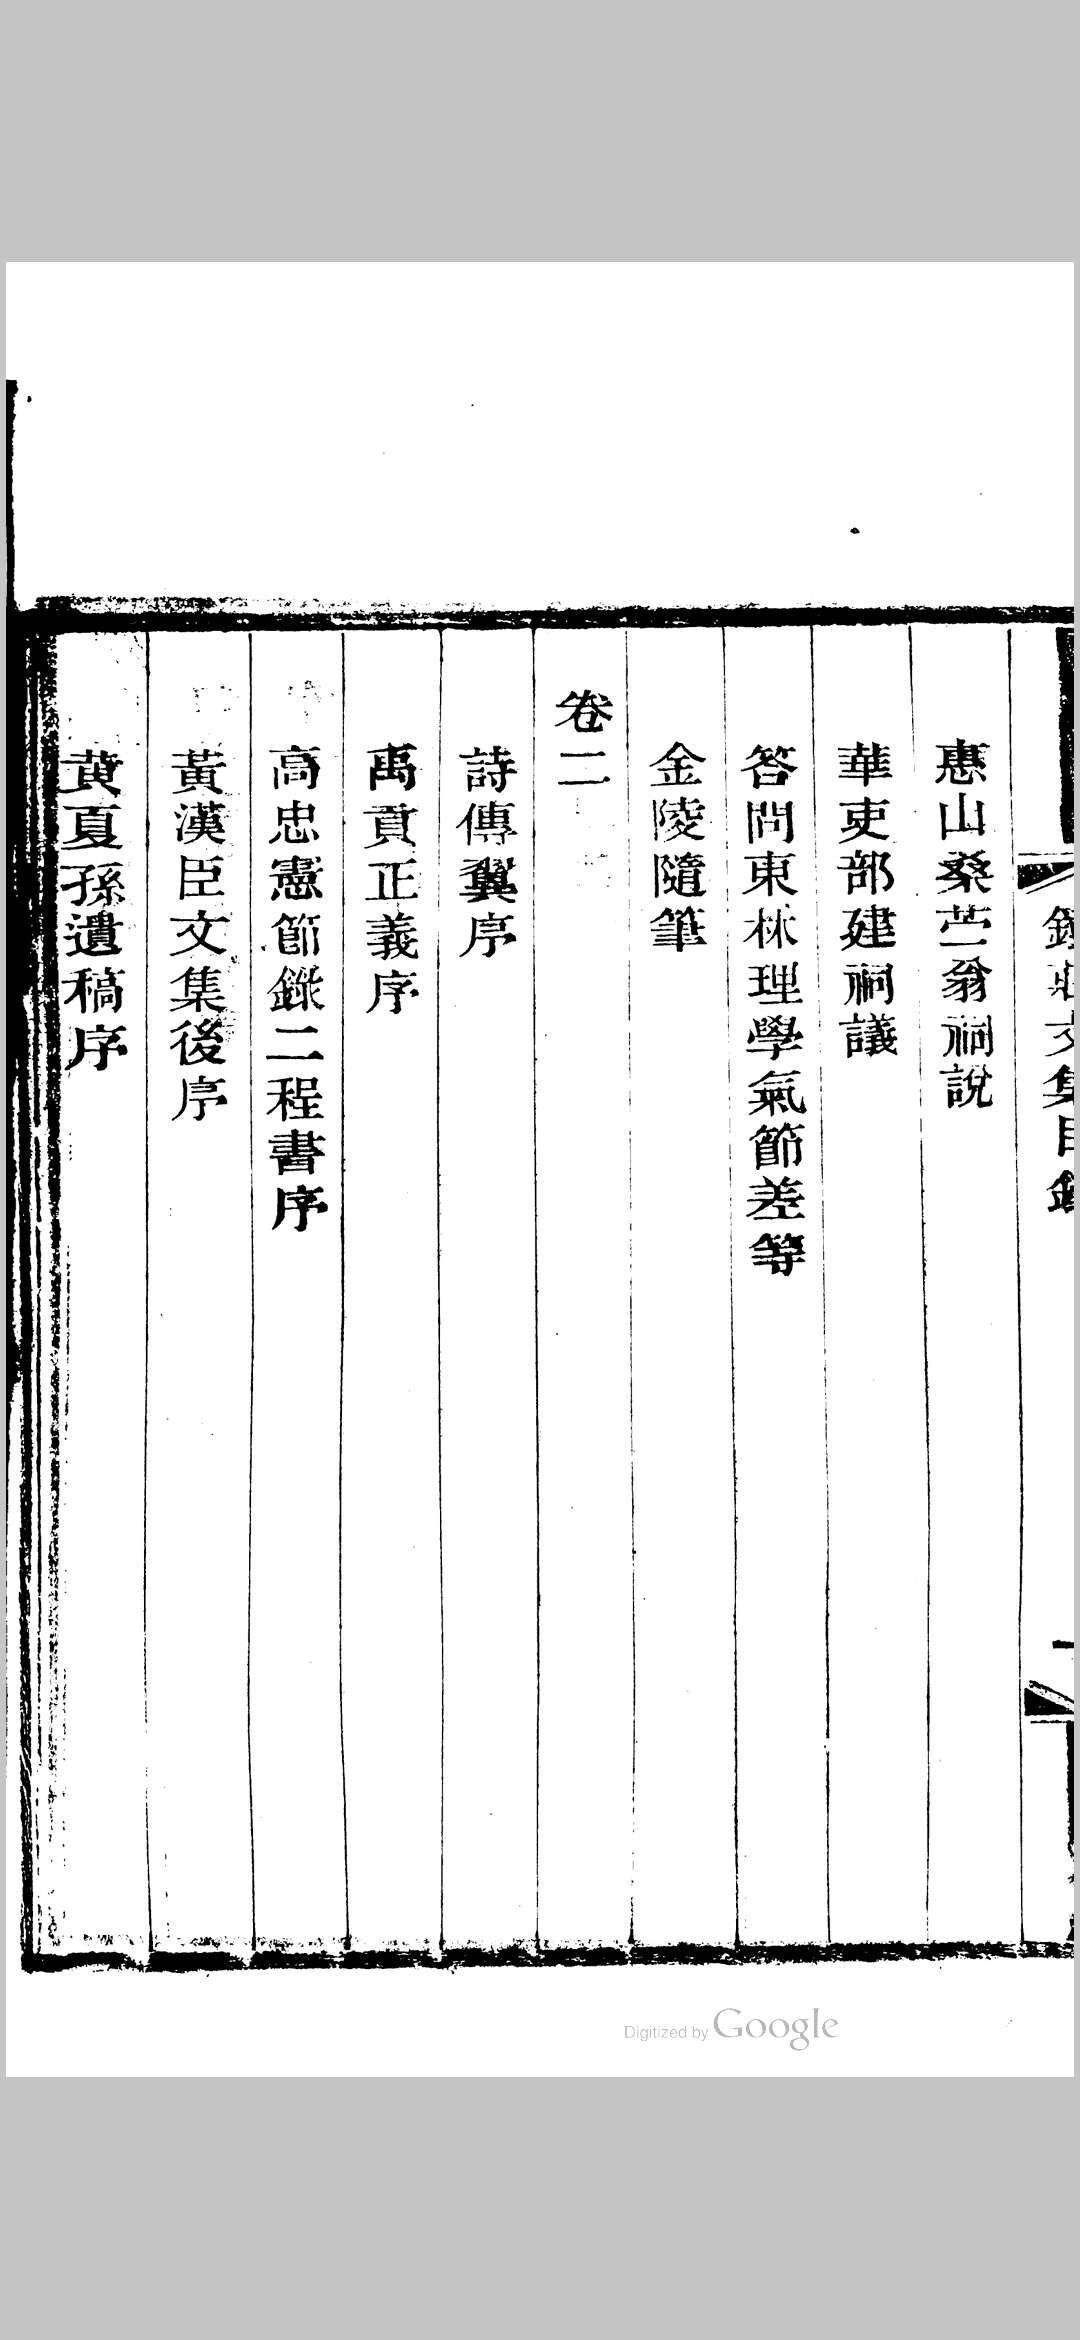 莊文集目錄
惠山桑苎翁祠說
華吏部建祠議
答問東林理學氣節差等
金陵隨筆
卷二
詩傳翼序
禹貢正義序
高忠憲節錄二程書序
黃漢臣文集後序
黃夏孫遺稿序
Digitized by Google